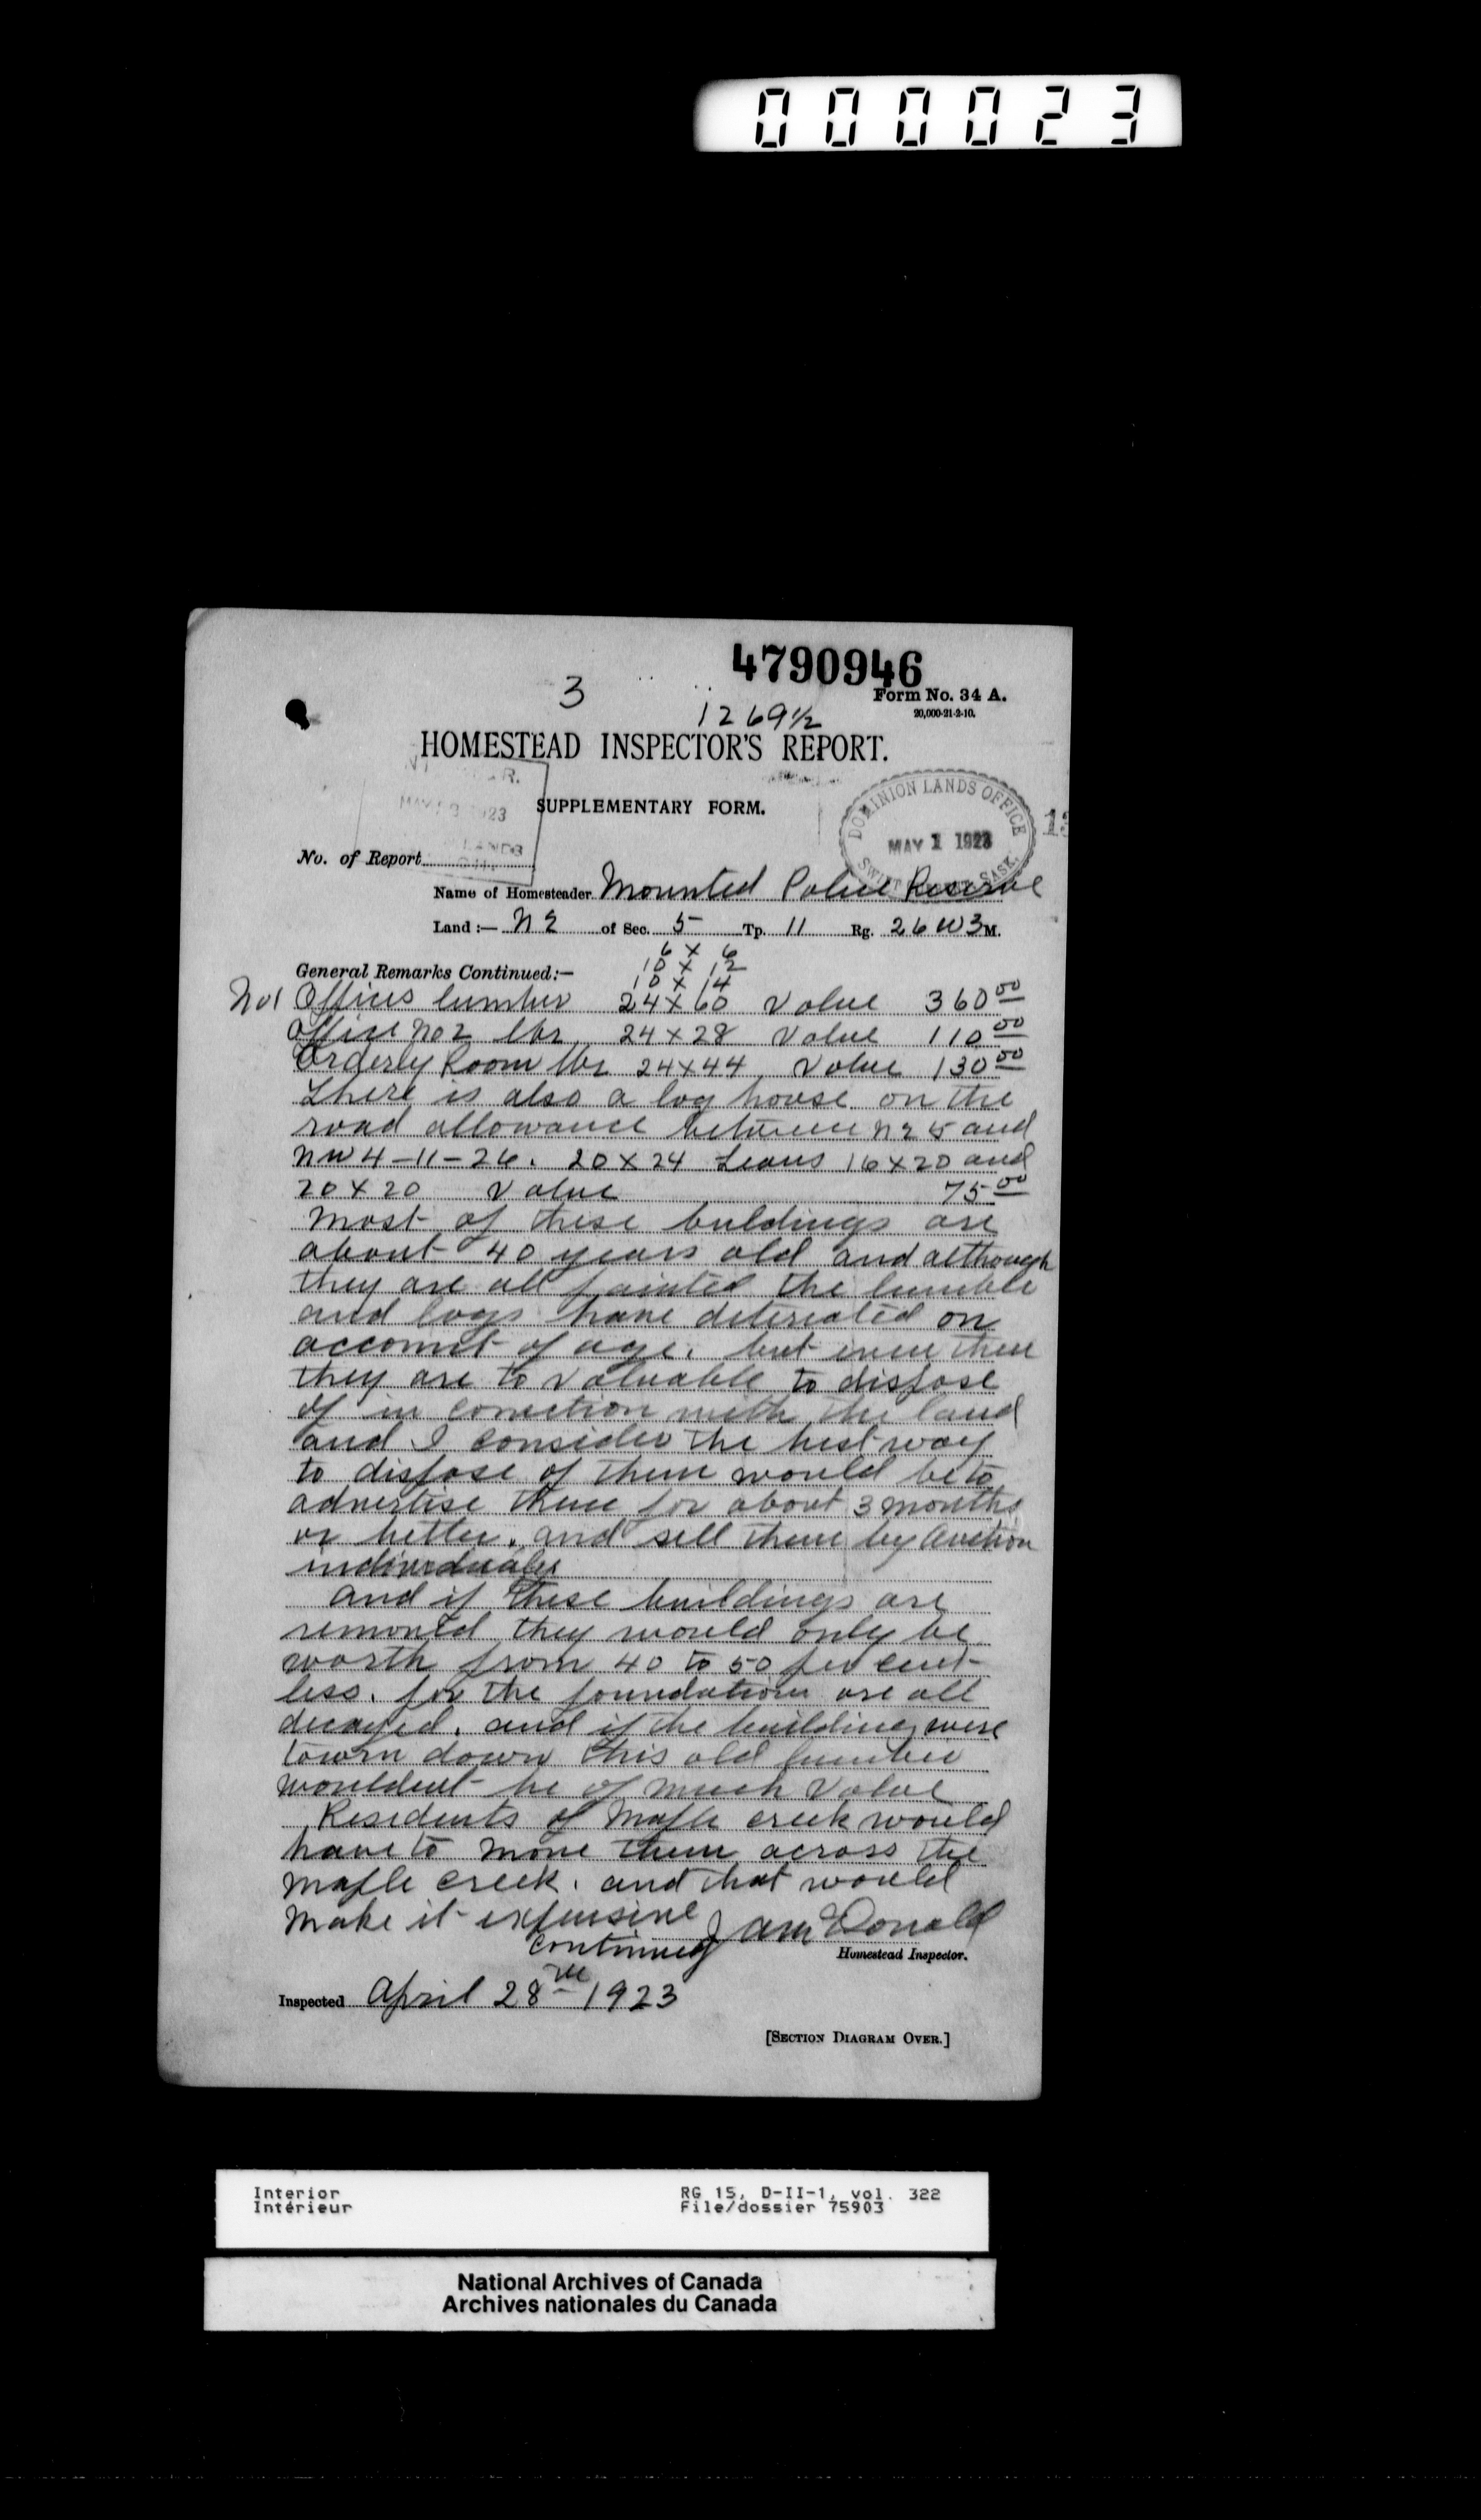 000023
4790946
3
Form No. 34 A.
20,000-21-2-10.
1269½
HOMESTEAD INSPECTOR'S REPORT.
MAY 23
SUPPLEMENTARY FORM.
DOMINION LANDS OFFICE
MAY 1 1923
SASK.
LANDS
No. of Report
Name of Homesteader Mounted Police Reserve
Land :— NE of Sec. 5 Tp. 11 Rg. 26 W 3 M.
6 x 6
10 x 12
General Remarks Continued:—
10 x 14
No1 Offices lumber 24 x 60 Value 360 00
Office No 2 lbr 24 x 28 Value 110 00
Orderly Room lbr 24 x 44 Value 130 00
There is also a log house on the
road allowance between NE 5 and
NW 4-11-26. 20 x 24 Leans 16 x 20 and
20 x 20 Value 75 00
Most of these buldings are
about 40 years old and although
they are all painted the lumber
and logs have detereated on
account of age. but even then
they are to valuable to dispose
of in conection with the land
and I consider the best way
to dispose of them would be to
advertise them for about 3 months
or better. and sell them by Auction
individualy
and if these buildings are
removed they would only be
worth from 40 to 50 per cent
less. for the foundations are all
decayed. and if the building were
towrn down this old lumber
wouldent be of much value
Residents of Maple creek would
have to move them across the
Maple creek. and that would
make it expensive
J A McDonald
continued
Homestead Inspector.
Inspected April 28th 1923
[SECTION DIAGRAM OVER.]
Interior RG 15, D-II-1, vol. 322
Intérieur File/dossier 75903
National Archives of Canada
Archives nationales du Canada